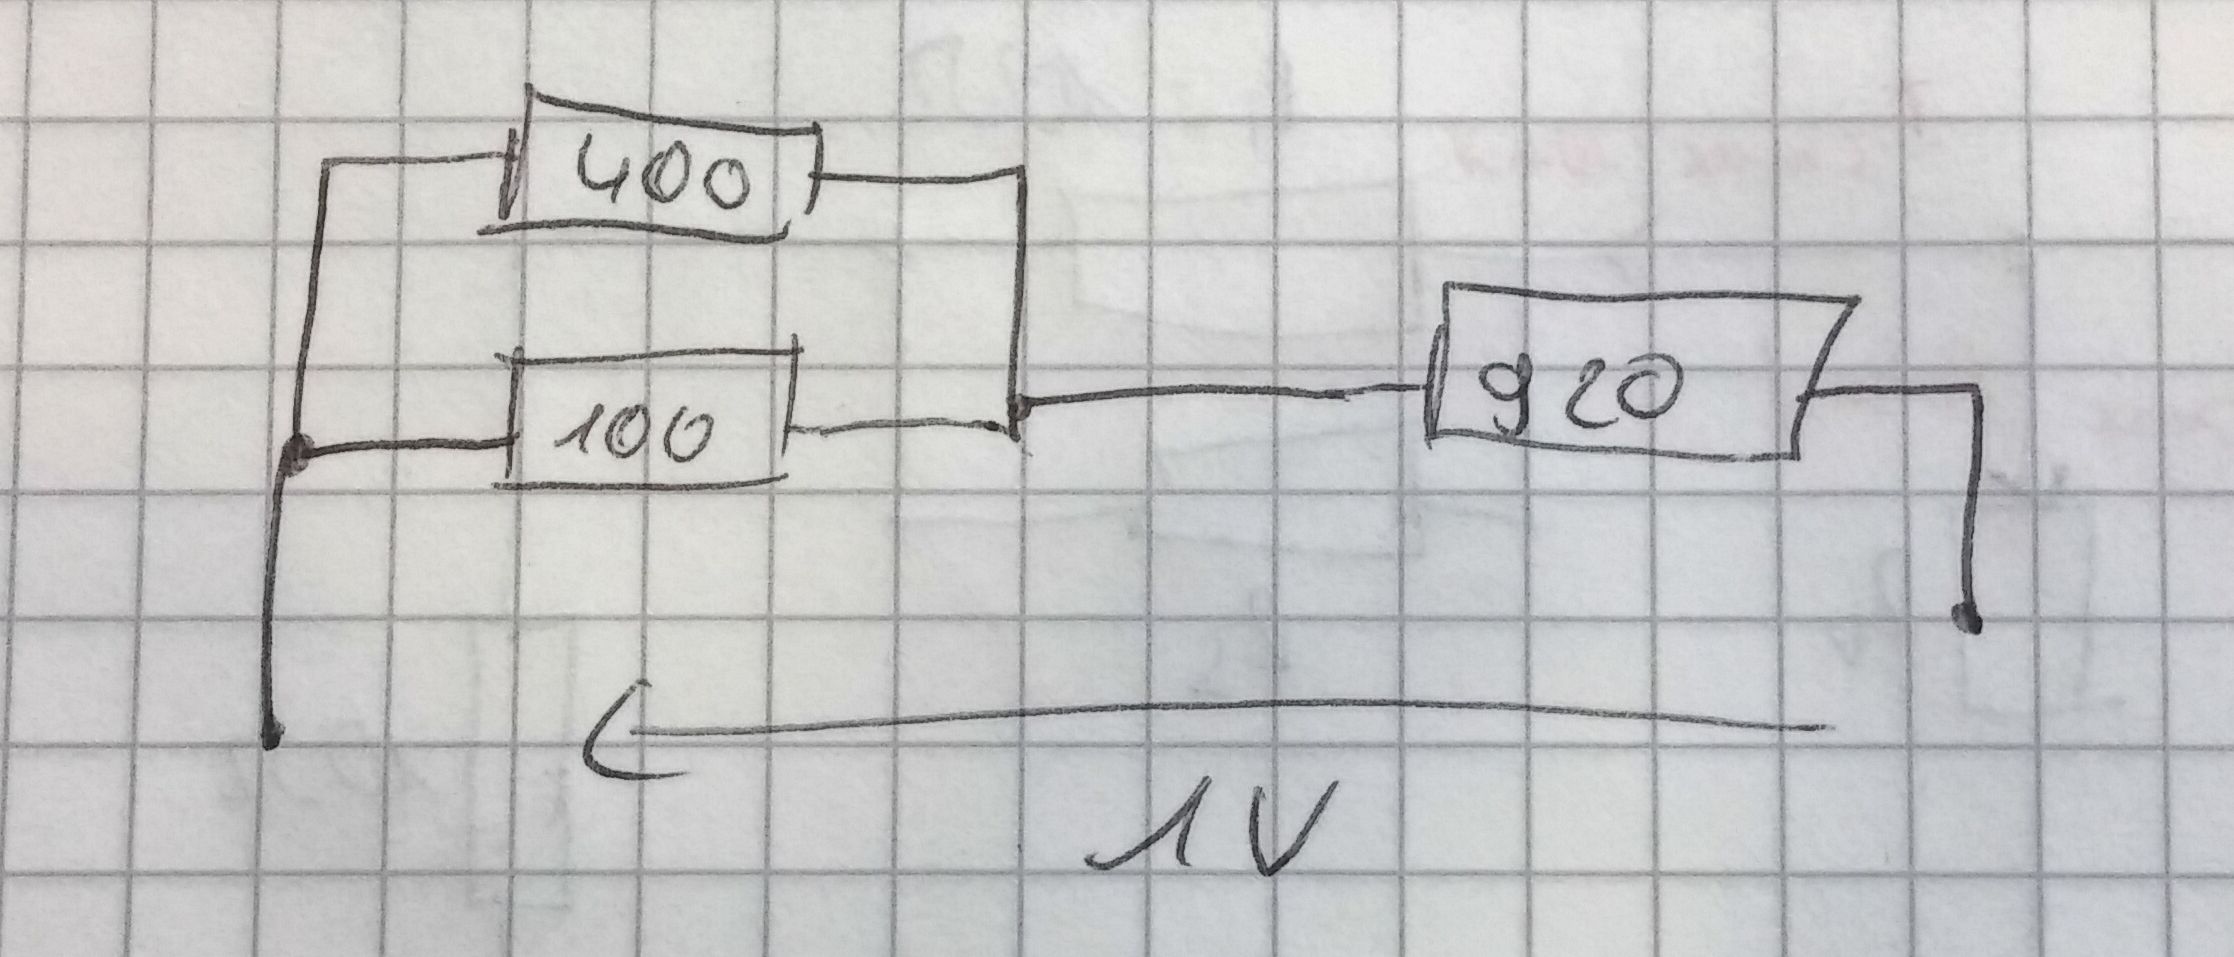 400
100
920
1V